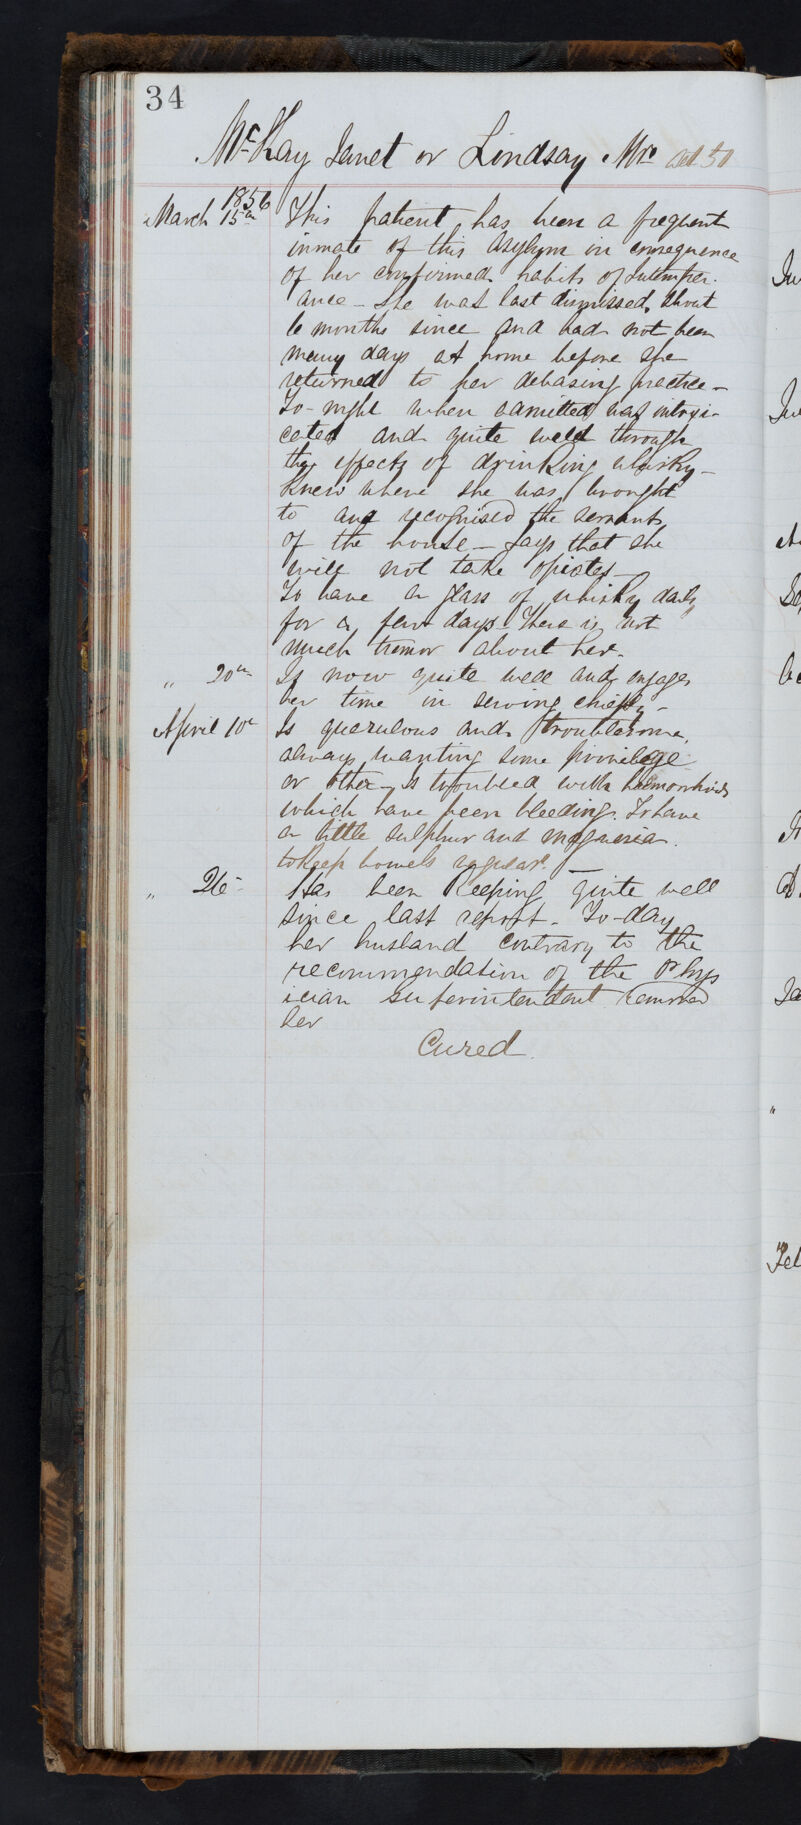 34
McKay Janet or Lindsay Mrs aet 50
1856
March 15th This patient has been a frequent
inmate of this Asylum in consequence
of her confirmed habits of Intemper-
ance - She was last dismissed about
6 months since and had not been
many days at home before she
returned to her debasing practice -
To-night when admitted was intoxi-
cated and quite well through
the effects of drinking whisky -
Knew where she was brought
to and recognised the servants
of the house - Says that she
will not take opiates -
To have a glass of whisky daily
for a few days - There is not
much tremor about her -
" 20th Is now quite well and engages
her time in sewing chiefly -
April 10th Is querulous and troublesome,
always wanting some privilege
or other - Is troubled with haemorrhoids
which have been bleeding. To have
a little sulphur and magnesia
to keep bowels regular. -
" 26th Has been keeping quite well
since last report - To-day
her husband contrary to the
recommendation of the Phys
ician Superintendent removed
her
Cured.